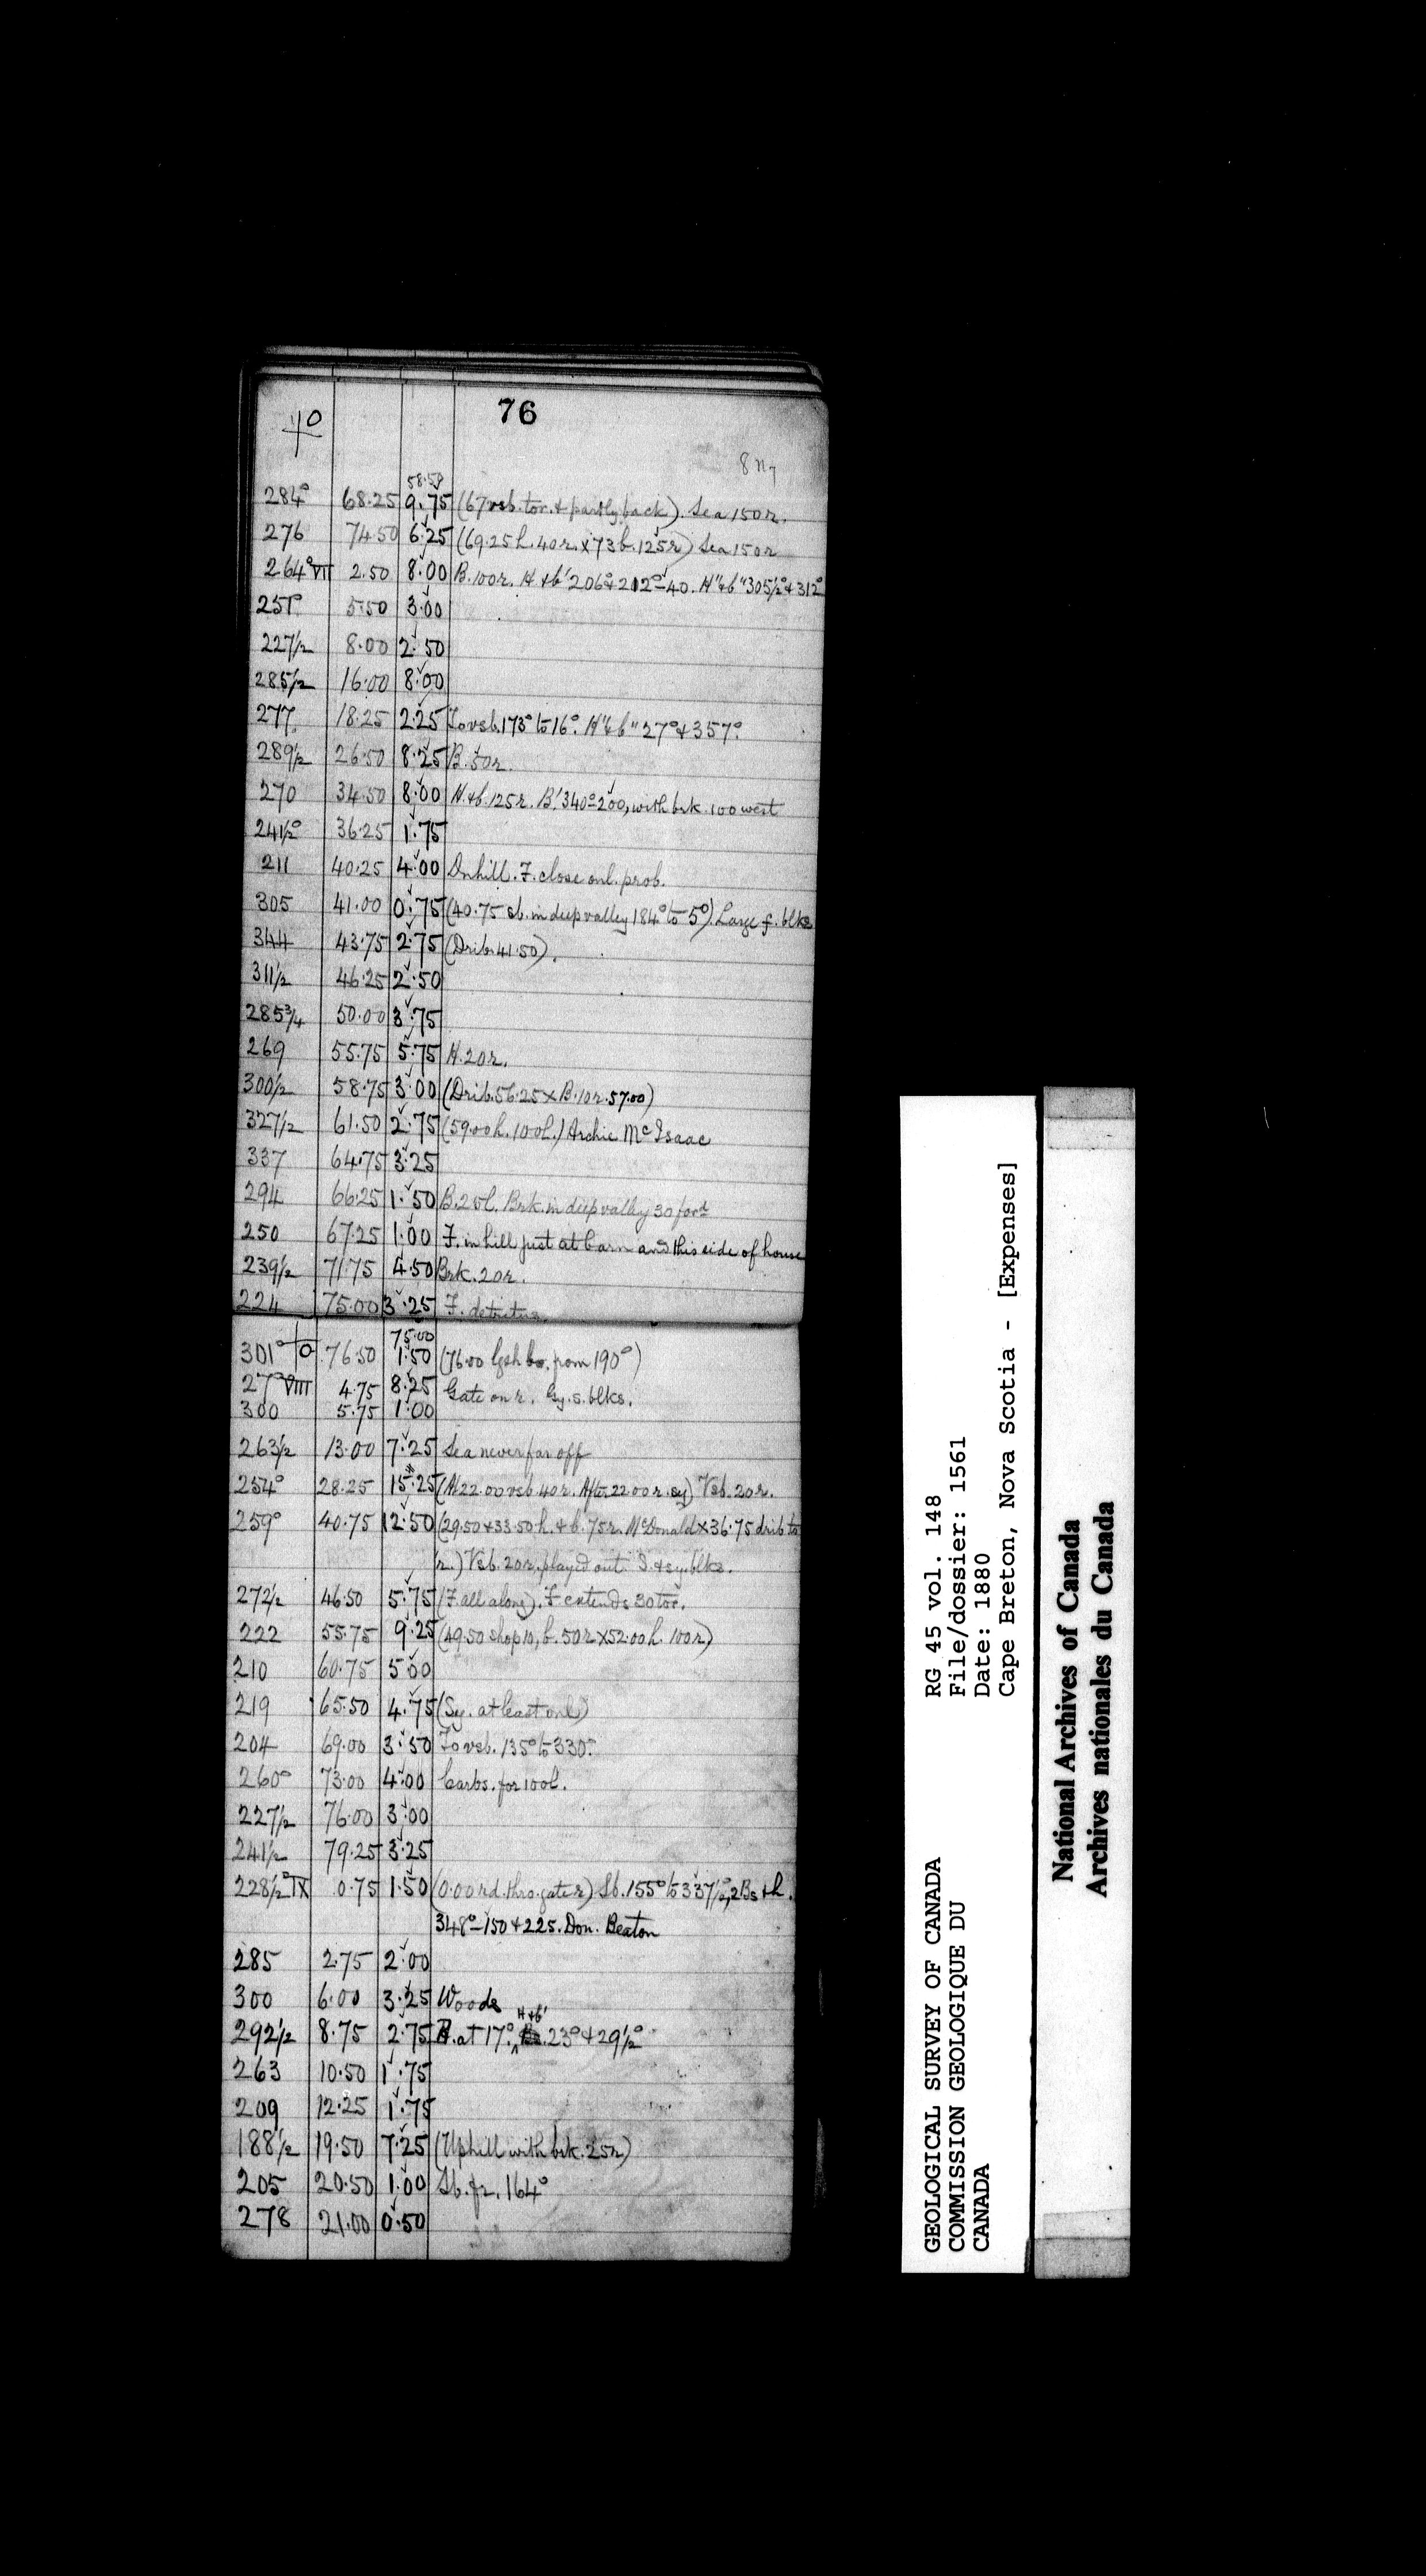 76
58.50
284° 68.25 9.75 (67 vsb. to r. & partly back). Sea 150 r.
276 74.50 6.25 (69.25 h. 40 r. x 73 b. 125 r) Sea 150 r
264° VII 2.50 8.00 B. 100 r. H & b' 206° & 212° - 40. H" & b" 305½° & 312°
251° 5.50 3.00
227½ 8.00 2.50
285½ 16.00 8.00
277 18.25 2.25 To vsb. 173° to 16°. H" & b" 27° & 357°.
289½ 26.50 8.25 B. 50 r.
270 34.50 8.00 H. & b. 125 r. B' 340° - 200, with brk. 100 west
241½° 36.25 1.75
211 40.25 4.00 Dnhill. F. close on l. prob.
305 41.00 0.75 (40.75 sb. in deep valley 184° to 5°). Large f. blks
344 43.75 2.75 (Drib. 41.50).
311½ 46.25 2.50
285¾ 50.00 3.75
269 55.75 5.75 H. 20 r.
300½ 58.75 3.00 (Drib. 56.25 x B. 10 r. 57.00)
327½ 61.50 2.75 (59.00 h. 100 l.) Archie McIsaac
337 64.75 3.25
294 66.25 1.50 B. 25 l. Brk. in deep valley 30 for'd
250 67.25 1.00 F. in hill just at barn and this side of house
239½ 71.75 4.50 Brk. 20 r.
224 75.00 3.25 F. detritus.
75.00
301° 76.50 1.50 (76.00 from 190°)
27° VIII 4.75 8.25 Gate on r. Gy. s. blks.
300 5.75 1.00
263½ 13.00 7.25 Sea never far off
254° 28.25 15.25 (At 22.00 vsb. 40 r. After 22.00 r. sy) Vsb. 20 r.
259° 40.75 12.50 (29.50 & 33.50 h. & b. 75 r. McDonald x 36.75 drib to
r.) Vsb. 20 r, played out. S. & sy. blks.
272½ 46.50 5.75 (F. all along). F. extends 30 to r.
222 55.75 9.25 (49.50 shop 10, b. 50 r x 52.00 h. 100 r)
210 60.75 5.00
219 65.50 4.75 (Sy. at least on l)
204 69.00 3.50 To vsb. 135° to 330°.
260° 73.00 4.00 Carbs. for 100 l.
227½ 76.00 3.00
241½ 79.25 3.25
228½° IX 0.75 1.50 (0.00 rd. thro. gate r) Sb. 155° to 337½°, 2 Bs & h.
348° - 150 & 225. Don. Beaton
285 2.75 2.00
300 6.00 3.25 Woods
H & b'
292½ 8.75 2.75 B. at 17°, 23° & 29½°
263 10.50 1.75
209 12.25 1.75
188½ 19.50 7.25 (Uphill with brk. 25 r)
205 20.50 1.00 Sb. fr. 164°
278 21.00 0.50
GEOLOGICAL SURVEY OF CANADA
COMMISSION GEOLOGIQUE DU
CANADA
RG 45 vol. 148
File/dossier: 1561
Date: 1880
Cape Breton, Nova Scotia - [Expenses]
National Archives of Canada
Archives nationales du Canada